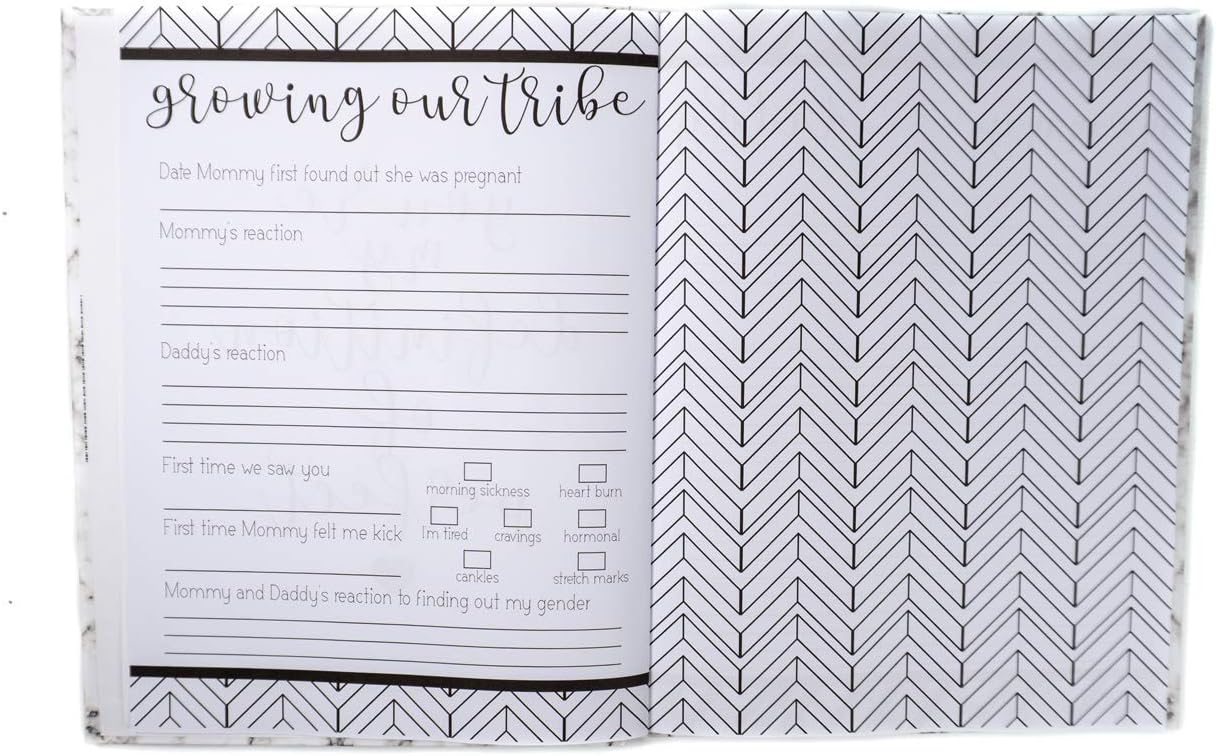 growing our tribe
Date Mommy first found out she was pregnant
Mommy's reaction
Daddy's reaction
First time we saw you
morning sickness heart burn
First time Mommy felt me kick
I'm tired cravings hormonal
cankles stretch marks
Mommy and Daddy's reaction to finding out my gender